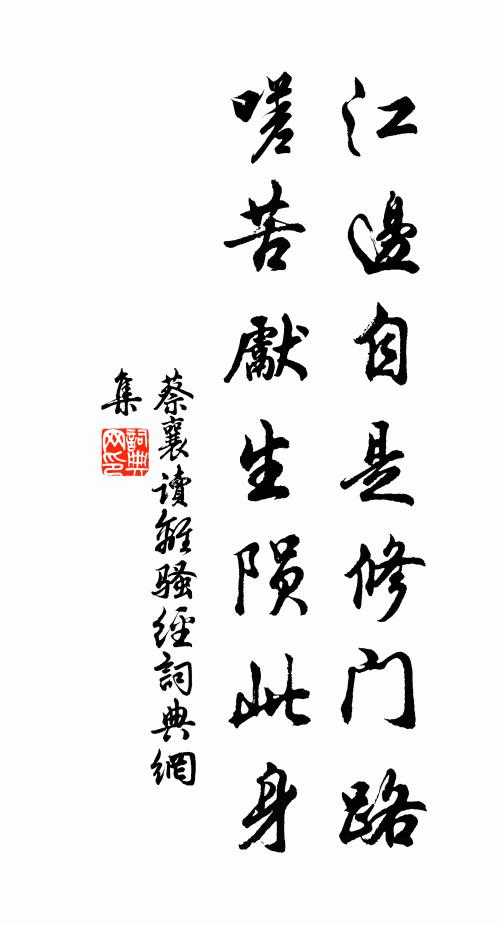 江邊自是修门路
嗟苦獻生陨此身
蔡襄讀離騷經詞典網
集
詞典
网印